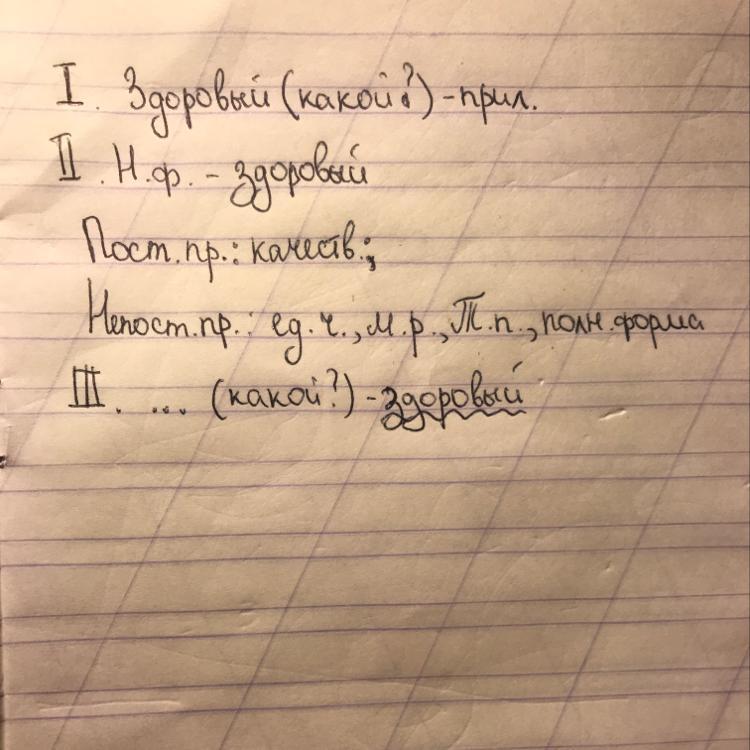 I. Здоровый (какой?) - прил.
II. Н.ф. - здоровый
Пост.пр.: качеств.;
Непост.пр.: ед.ч., м.р., Т.п., полн.форма
III. ... (какой?) - здоровый